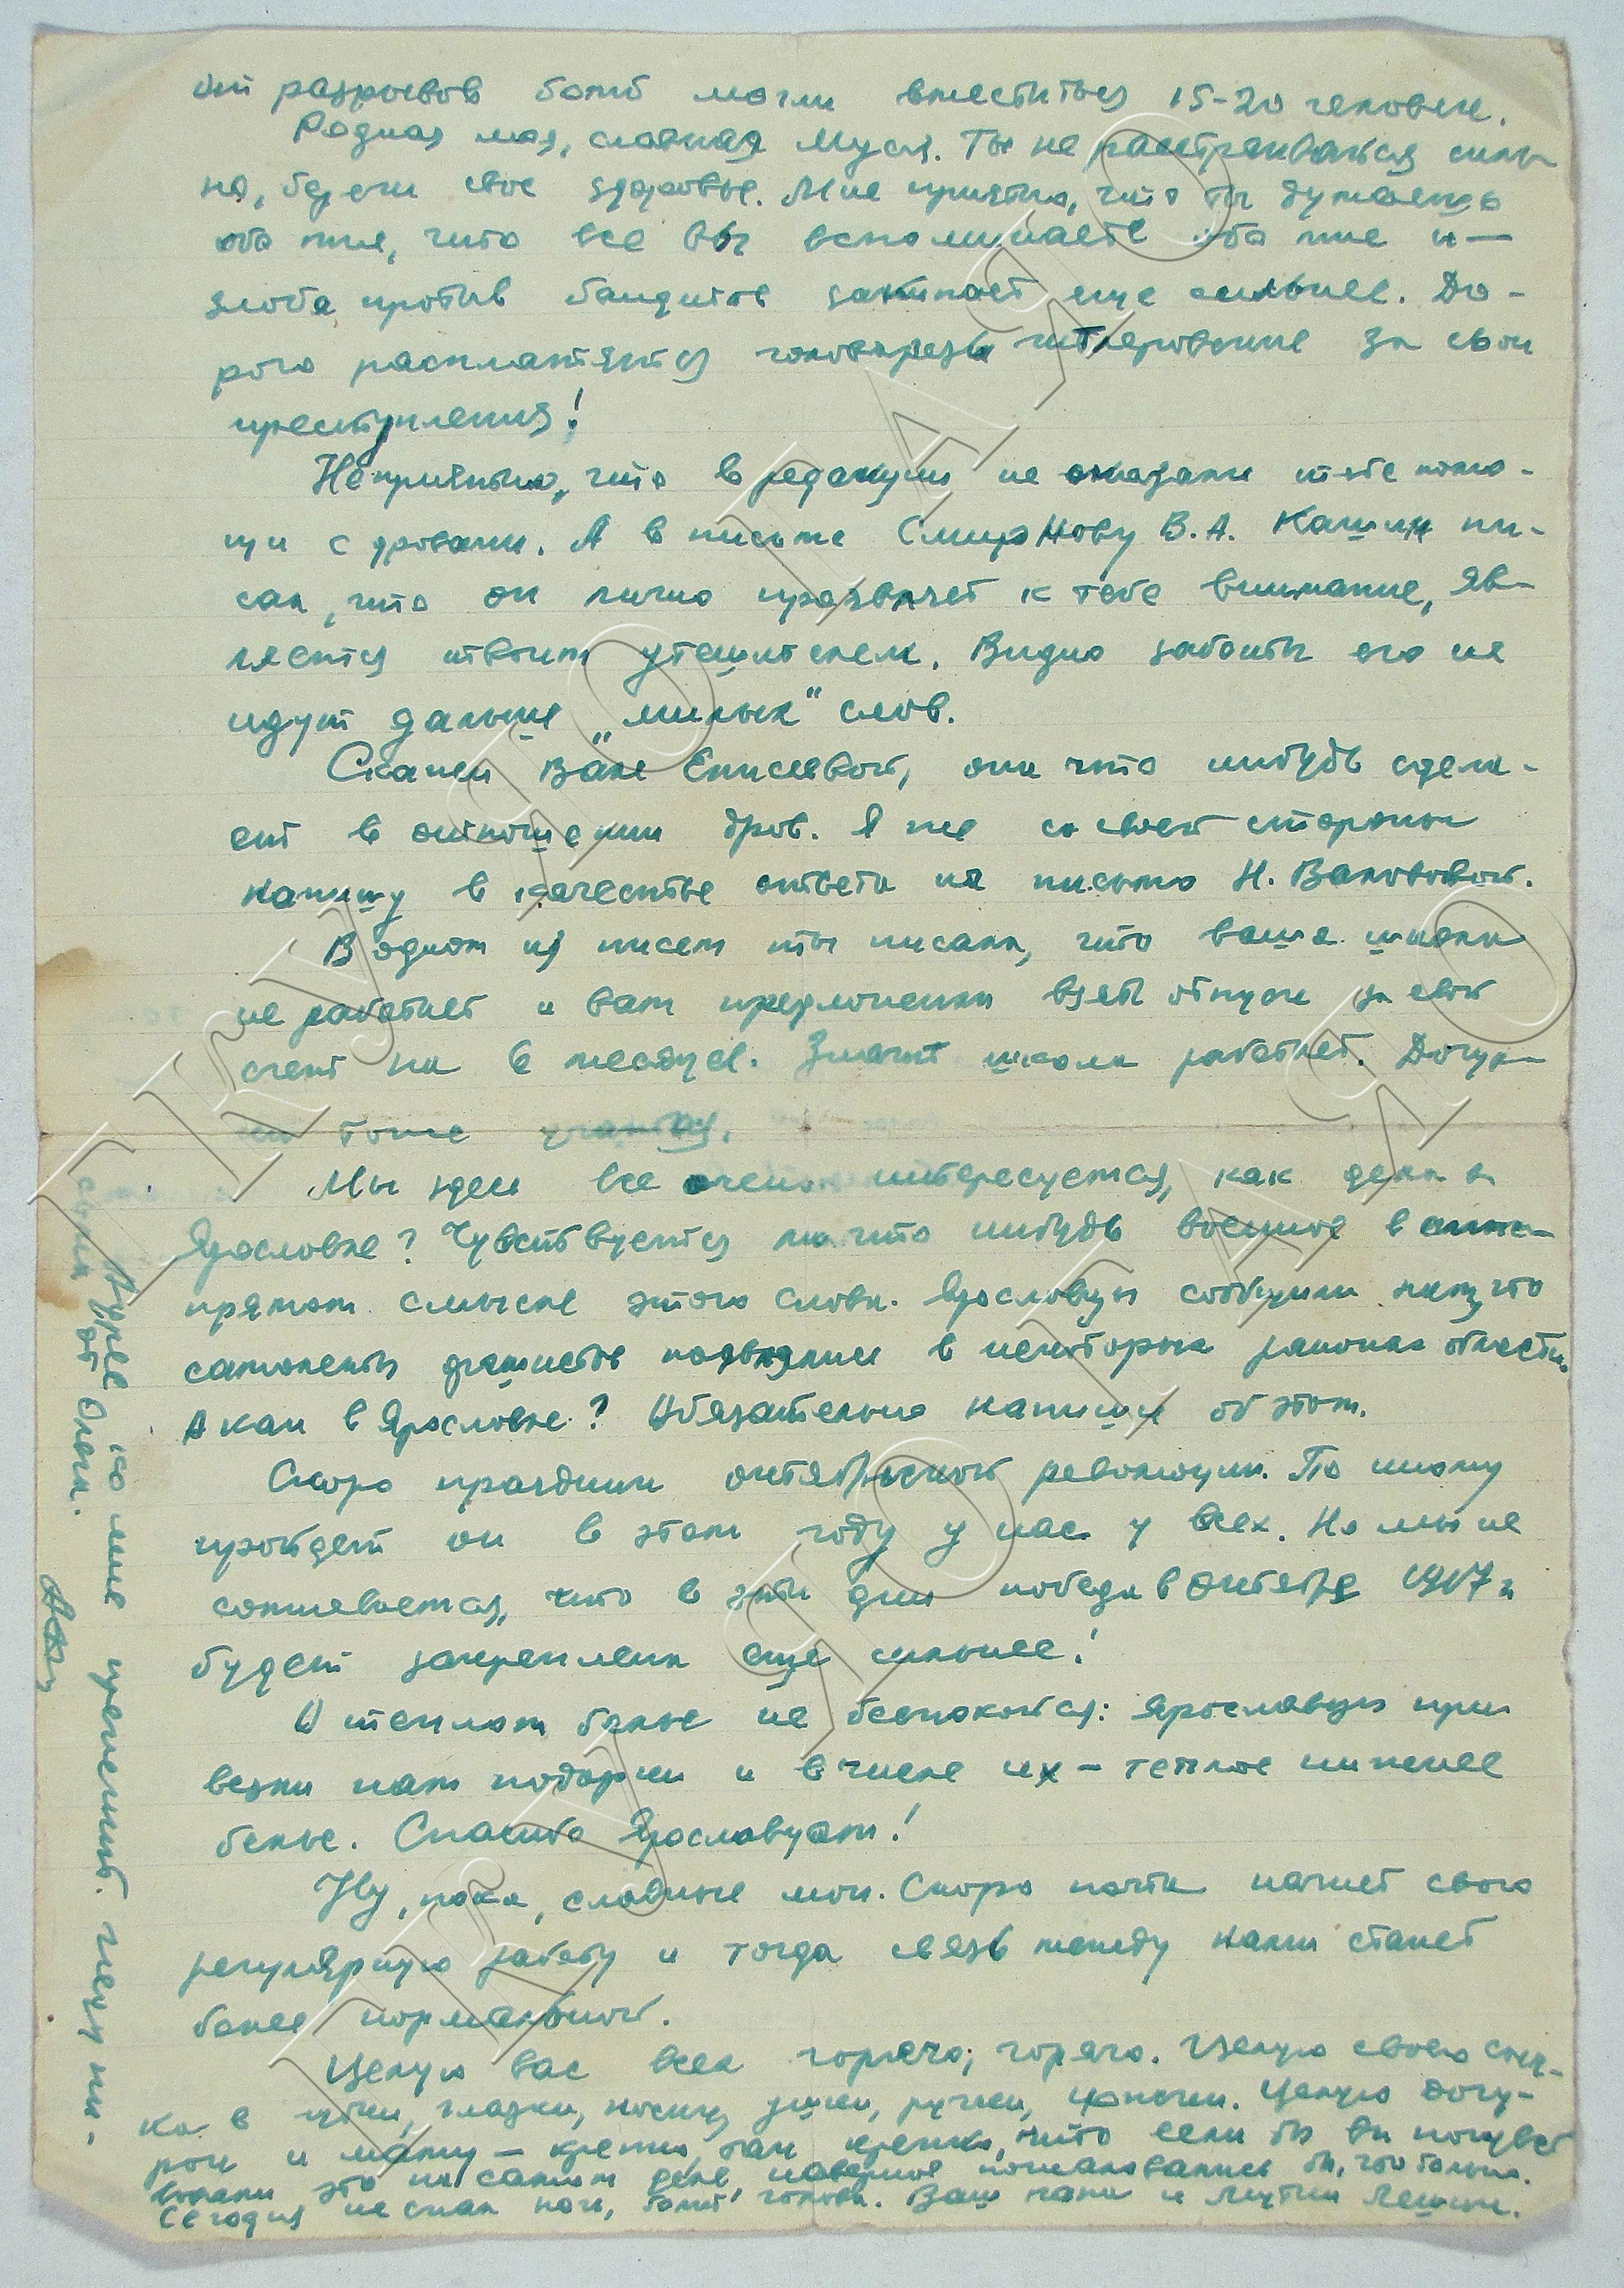 от разрывов бомб могли вместиться 15-20 человек.
Родная моя, славная Муся. Ты не расстраивайся силь-
но, береги свое здоровье. Мне приятно, что ты думаешь
обо мне, что все вы вспоминаете обо мне и —
злоба против бандитов закипает еще сильнее. До-
рого расплатятся головорезы гитлеровские за свои
преступления!
Неприятно, что в редакции не оказали тебе помо-
щи с дровами. А в письме Смирнову В.А. Кашин пи-
сал, что он лично проявляет к тебе внимание, яв-
ляется твоим утешителем. Видно заботы его не
идут дальше „милых" слов.
Скажи Вале Елисеевой, она что нибудь сдела-
ет в отношении дров. Я же со своей стороны
напишу в качестве ответа на письмо Н. Валововой.
В одном из писем ты писала, что ваша школа
не работает и вам предложили взять отпуск за свой
счет на 6 месяцев. Значит школа работает. Дочур-
ка тоже учится.
Мы здесь все очень интересуемся, как дела в
Ярославле? Чувствуется ли что нибудь военное в
прямом смысле этого слова. Ярославцы сообщили нам, что
самолеты фашистов появлялись в некоторых районах области.
А как в Ярославле? Обязательно напиши об этом.
Скоро праздник октябрьской революции. По иному
пройдет он в этом году у нас у всех. Но мы не
сомневаемся, что в эти дни победа в Октябре 1917 г.
будет закреплена еще сильнее!
О теплом белье не беспокойся: Ярославцы при
везли нам подарки и в числе их — теплое нижнее
белье. Спасибо Ярославцам!
Ну, пока, славные мои. Скоро почта начнет свою
регулярную работу и тогда связь между нами станет
более нормальной.
Целую вас всех горячо, горячо. Целую своего сын-
ка в губки, глазки, носик, ушки, ручки, ножки. Целую дочу-
рки и мамку — крепко, так крепко, что если бы вы почувст
вовали это на самом деле, наверное пожаловались бы, что больно.
Сегодня не спал ночь, болит голова. Ваш папа и Лешин.
Аурее ко мне
сына от Ольги.